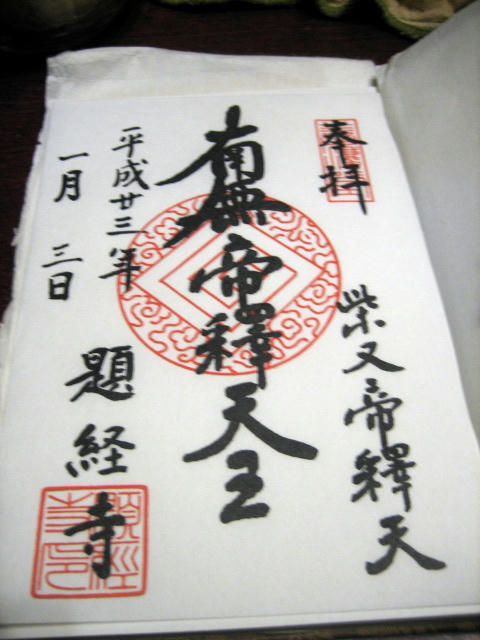 奉拝
柴又帝釋天
南無帝釋天王
平成廿三年
一月三日
題経寺